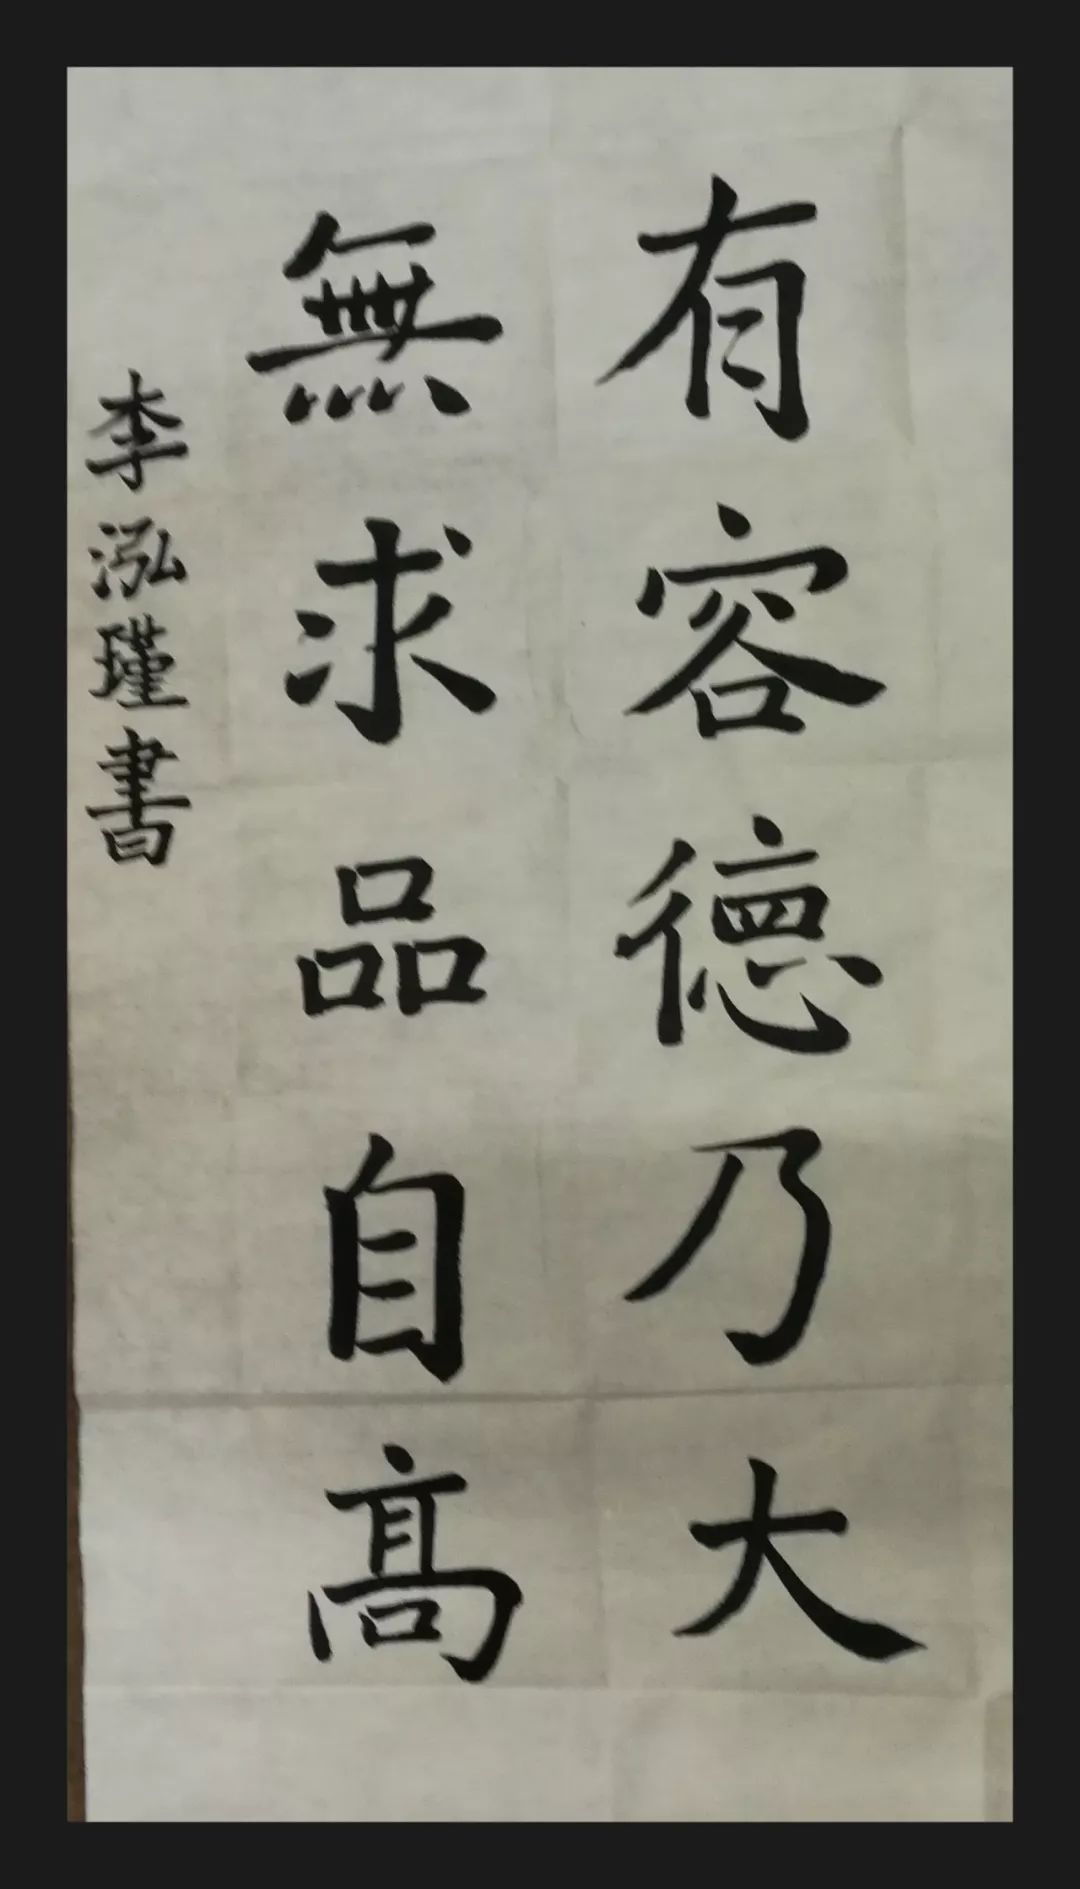 有容德乃大
無求品自髙
李泓瑾書